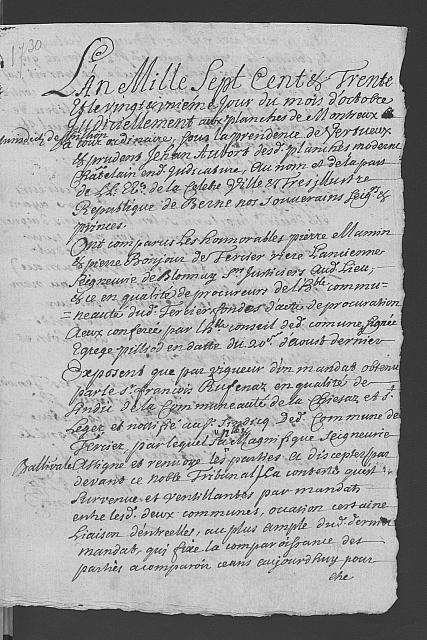 1730
L'An Mille Sept Cent & Trente
Et le vingt unieme Jour du mois d'octobre
Juditiellement aux planches de Montreux
En cour ordinaire, sous la presidence de vertueux
& prudent Jehan Aubort desd. planches moderne
Chatelain end. Judicature, Au nom & de la part
de LL. Ex. de la Celebre Ville & Tres illustre
Republique de Berne nos Souverains Seigrs &
princes.
Ont comparus Les honnorables pierre Mamin
& pierre Bonjour de Fercier rière L'ancienne
Seigneurie de Blonnay Srs Justiciers Aud. Lieu,
& ce en qualité de procureurs de l'hble commu=
=neauté dud. Fercier fondés d'acte de procuration
A eux conferée par l'hble conseil de d. comune signée
Egrege pilliod en datte du 20e d'aoust dernier
Exposent que par vigueur d'un mandat obtenu
par le Sr. François Rufenaz en qualité de
sindic de la Communeauté de la Chiesaz et St
Leger et notifié au Sr. sindicq de d. Commune de
Fercier par lequel Sa Magnifique Seigneurie
Ballivale Assigne et renvoye les parties a disceptes par
devant ce noble Tribunal sur la conteste quest
survenue et ventillantes par mandats
entre lesd. deux communes, occasion certaine
Liaison d'entrelles, au plus ample dud. dernier
mandat, qui fixe la comparoissance des
parties a comparoir ceans aujourdhuy pour
che